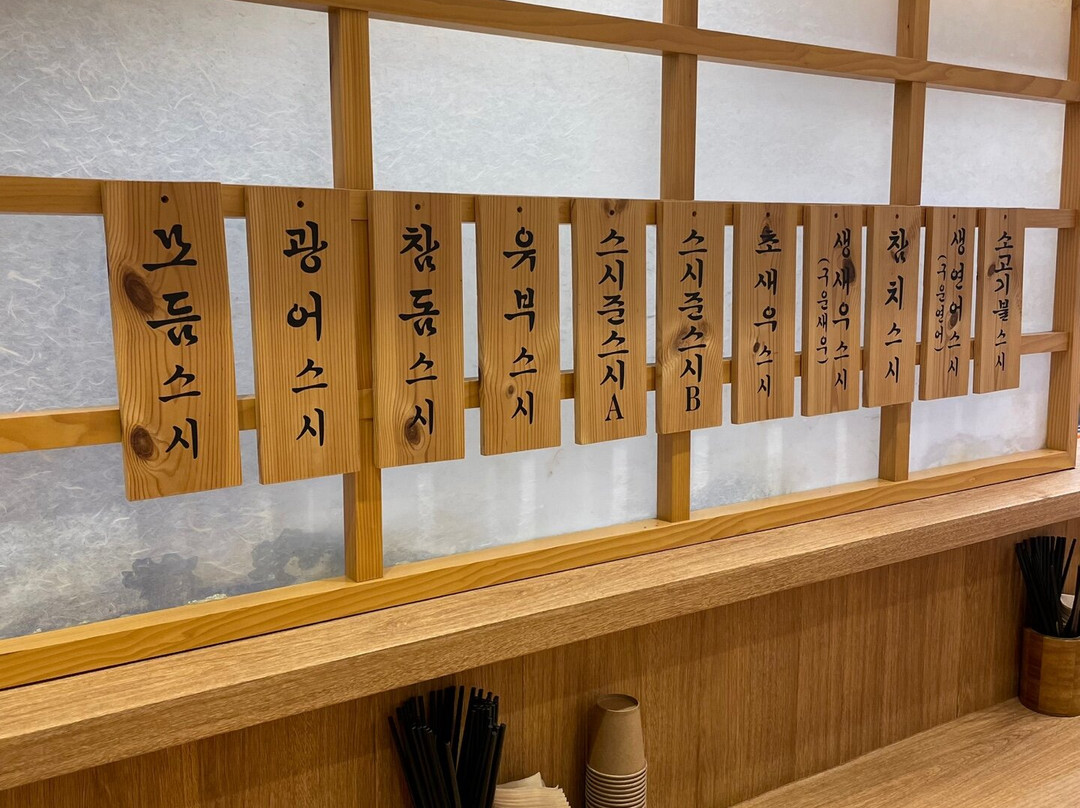 모듬스시
광어스시
참돔스시
유부스시
스시준스시A
스시준스시B
초새우스시
생새우스시
(구운새우)
참치스시
생연어스시
(구운연어)
소고기불스시